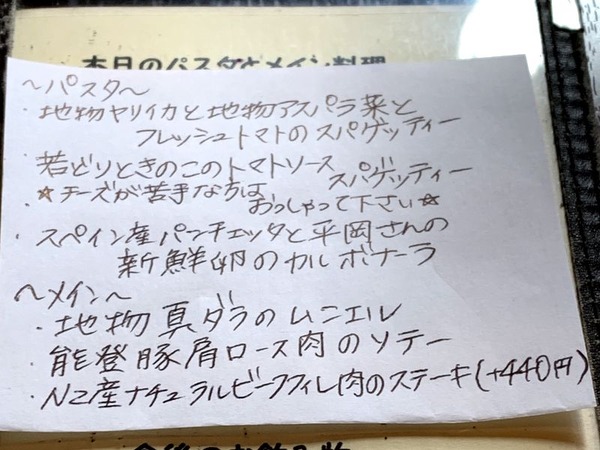 本日のパスタとメイン料理
〜パスタ〜
・地物ヤリイカと地物アスパラ菜と
フレッシュトマトのスパゲッティー
若どりときのこのトマトソース
スパゲッティー
☆チーズが苦手な方は
おっしゃって下さい☆
・スペイン産パンチェッタと平岡さんの
新鮮卵のカルボナーラ
〜メイン〜
・地物真ダラのムニエル
・能登豚肩ロース肉のソテー
・NZ産ナチュラルビーフフィレ肉のステーキ(+440円)